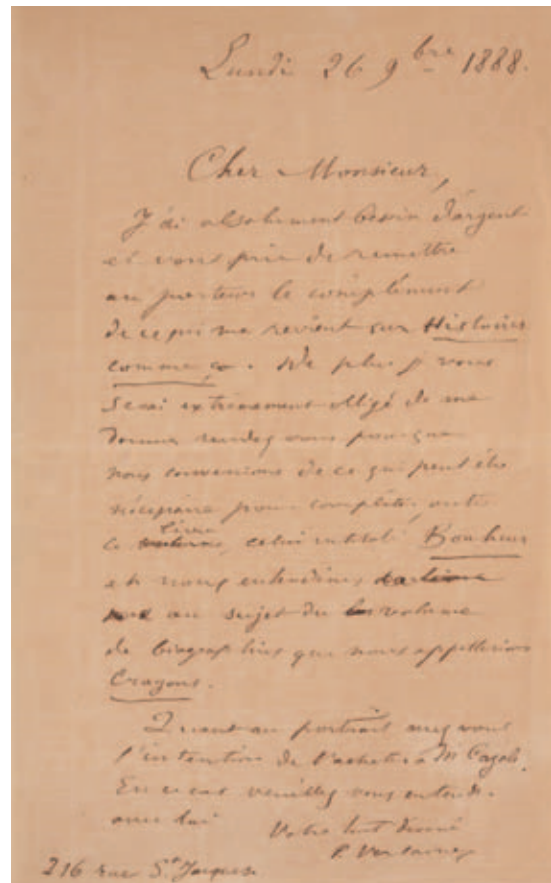 Lundi 26 9bre 1888.
Cher Monsieur,
J'ai absolument besoin d'argent
et vous prie de remettre
au porteur le complément
de ce qui me revient sur Histoires
comme ça. De plus je vous
serai extrêmement obligé de me
donner rendez vous pour que
nous convenions de ce qui peut être
nécessaire pour compléter, outre
ce livre, celui intitulé Bonheur
et nous entendions
au sujet du volume
de biographies que nous appellerions
Crayons.
Quant au portrait avez vous
l'intention de l'acheter à Mr Cazals.
En ce cas veuillez vous entendre
avec lui
Votre tout dévoué
P. Verlaine
216 rue St Jacques